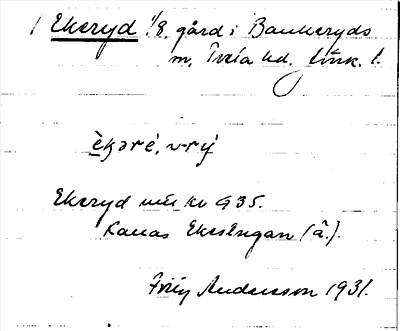 Ekeryd 1/8, gård i Bankeryds
sn, Tveta hd. Jönk. l.
èkəré, v-rý
Ekeryd
Kallas Ekeängan (ä.).
Andersson 1931.